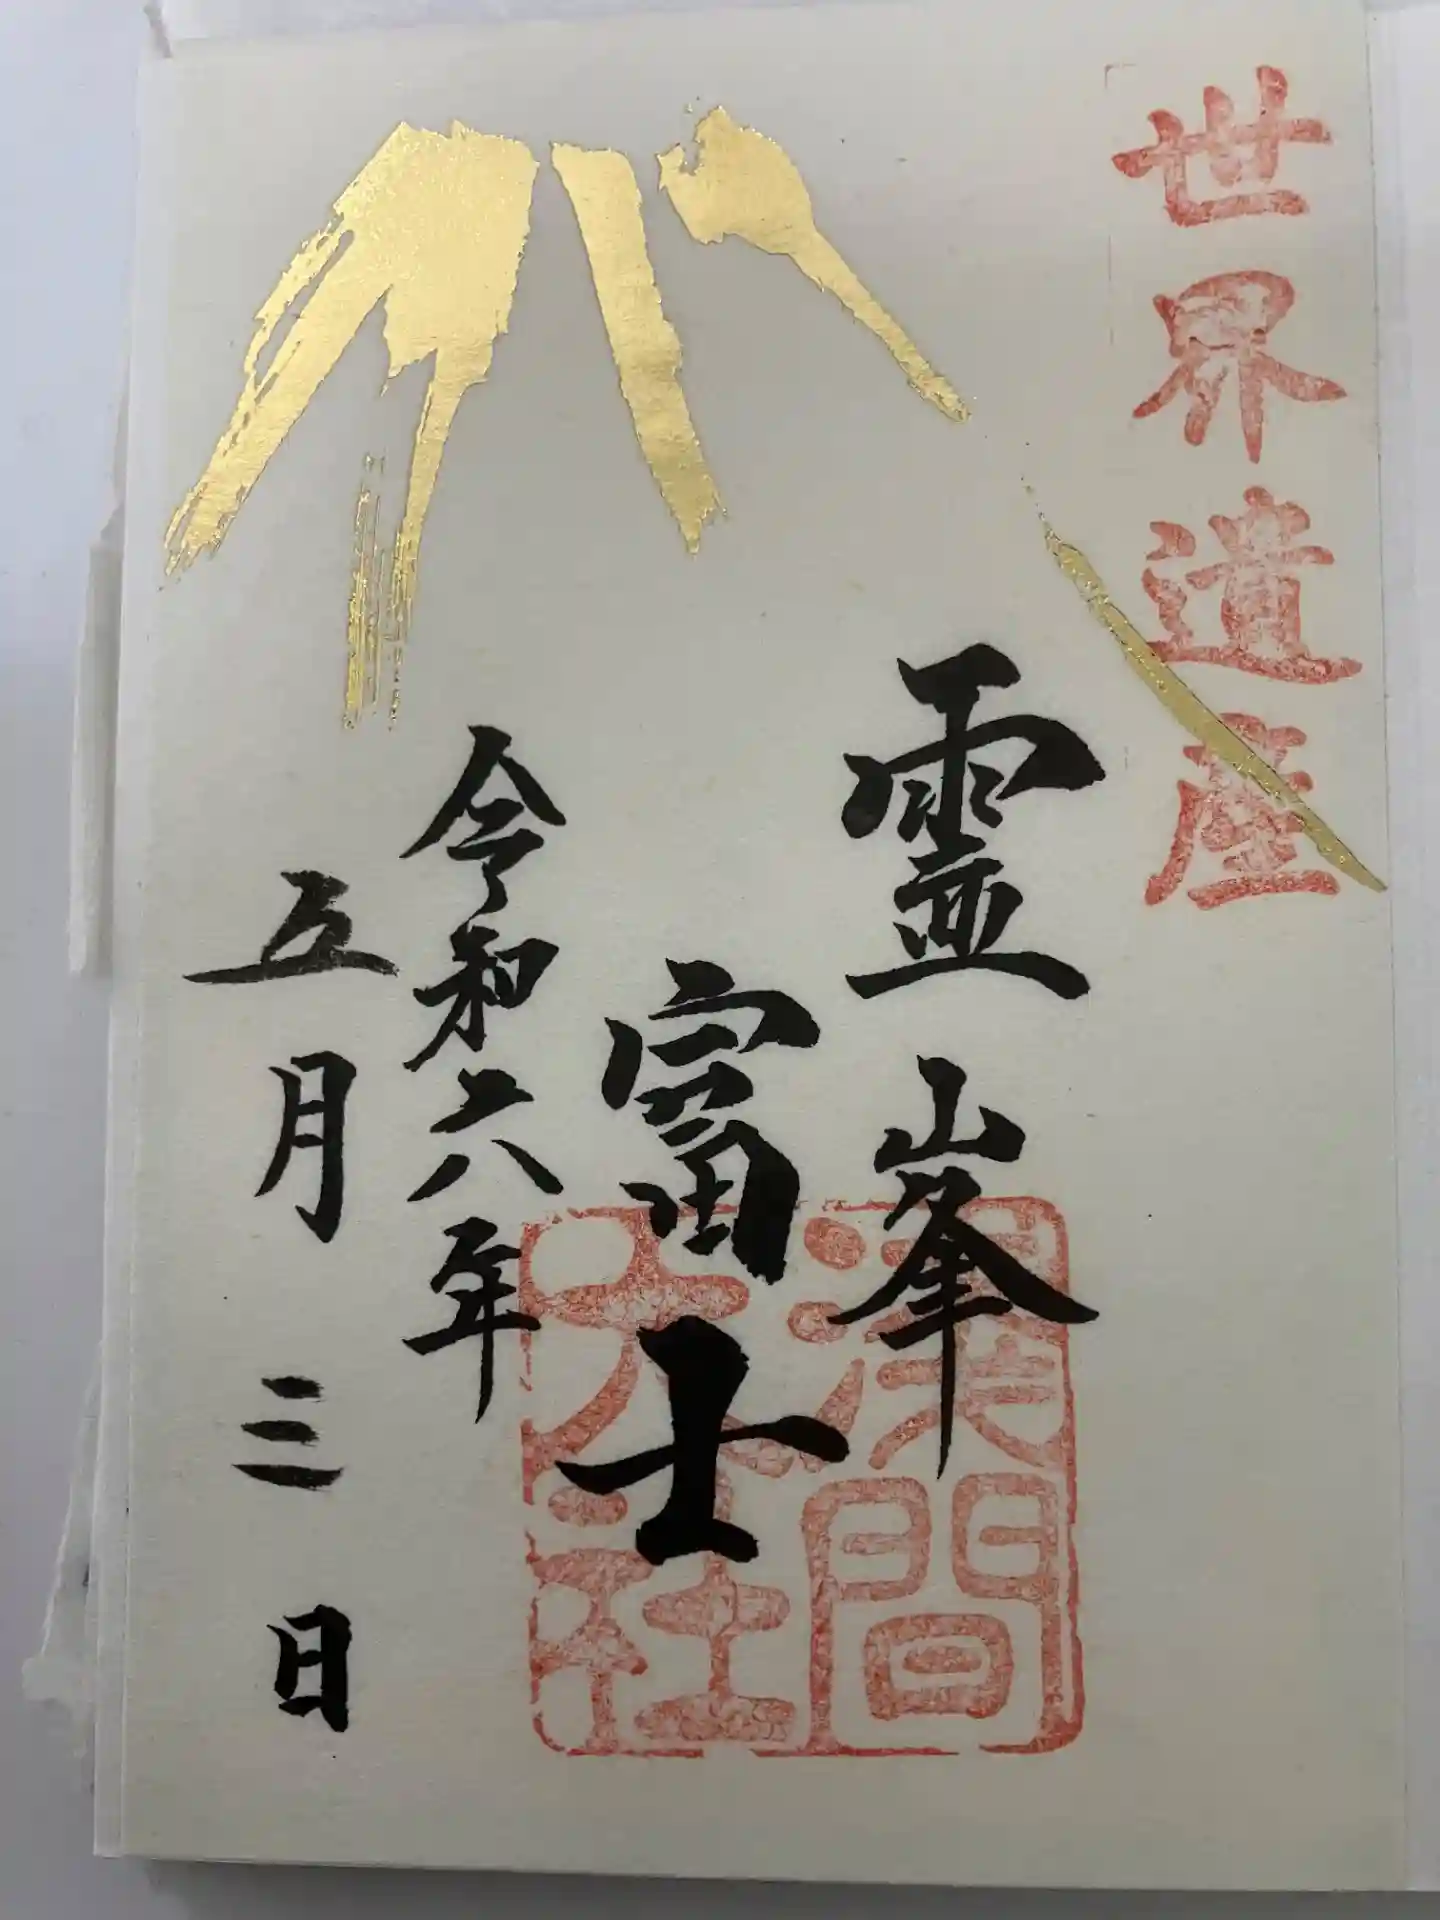 世界遺産
霊峯
富士
令和六年
五月三日
浅間
大社